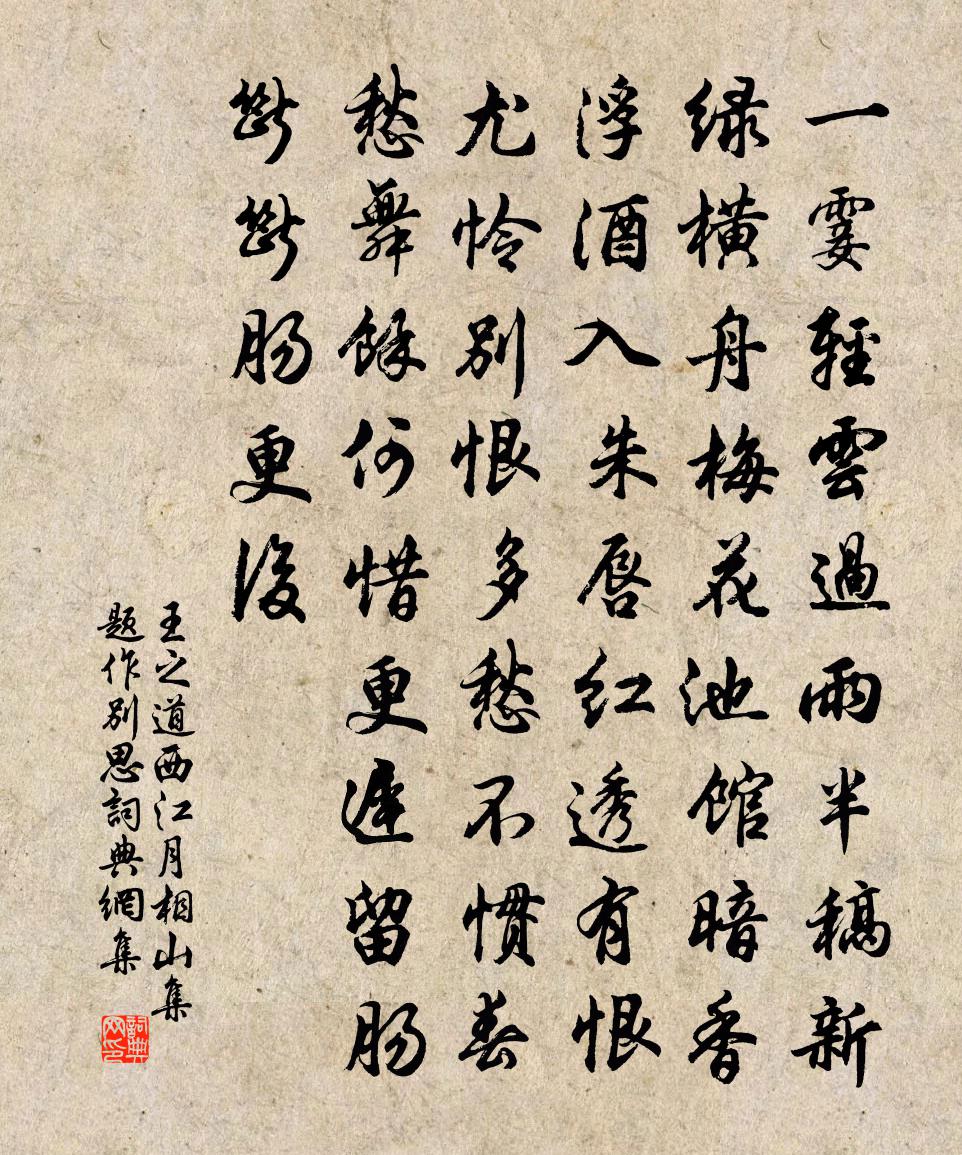 一霎輕雲過雨半稿新
緑横舟梅花池館暗香
浮酒入朱唇红透有恨
尤怜别恨多愁不慣春
愁舞餘何惜更遲留肠
斷斷肠更後
王之道西江月相山集
题作别思詞典網集
詞典网印